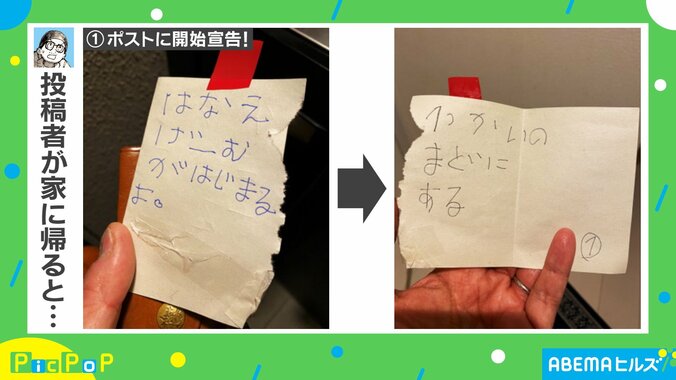 ①ポストに開始宣告!
投稿者が家に帰ると…
はなえ
げーむ
がはじまる
よ。
1っかいの
まどに
ある
①
PicPoP
ABEMAヒルズ